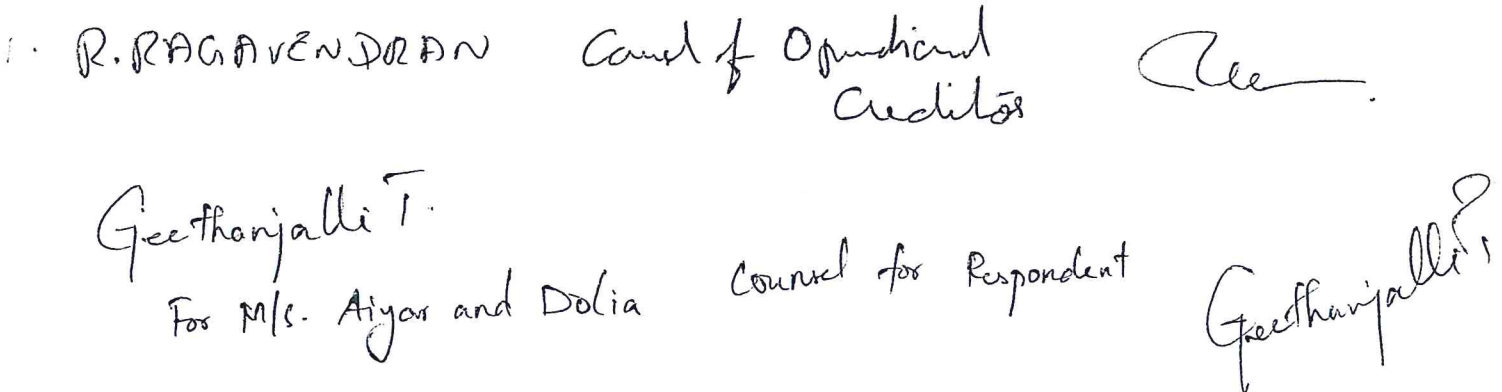 1. R. RAGAVENDRAN Counsel for Operational
Creditors
Geethanjalli T.
For M/s. Aiyar and Dolia Counsel for Respondent Geethanjalli T.